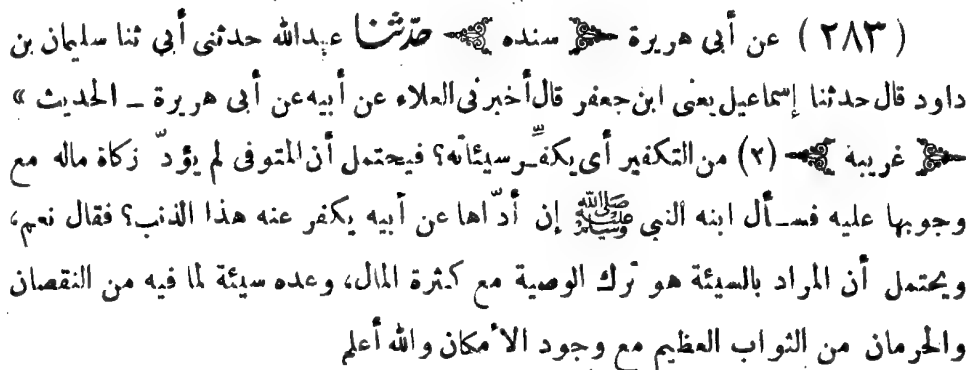 (٢٨٣) عن أبى هريرة ﴿ سنده ﴾ حدّثنا عبدالله حدثنى أبى ثنا سليمان بن
داود قال حدثنا إسماعيل يعنى ابن جعفر قال أخبرنى العلاء عن أبيه عن أبى هريرة ـ الحديث »
﴿ غريبة ﴾ (٢) من التكفير أى يكفِّر سيئاته؟ فيحتمل أن المتوفى لم يؤدّ زكاة ماله مع
وجوبها عليه فسأل ابنه النبى ﷺ إن أدّاها عن أبيه يكفر عنه هذا الذنب؟ فقال نعم،
ويحتمل أن المراد بالسيئة هو ترك الوصية مع كثرة المال، وعده سيئة لما فيه من النقصان
والحرمان من الثواب العظيم مع وجود الأمكان والله أعلم